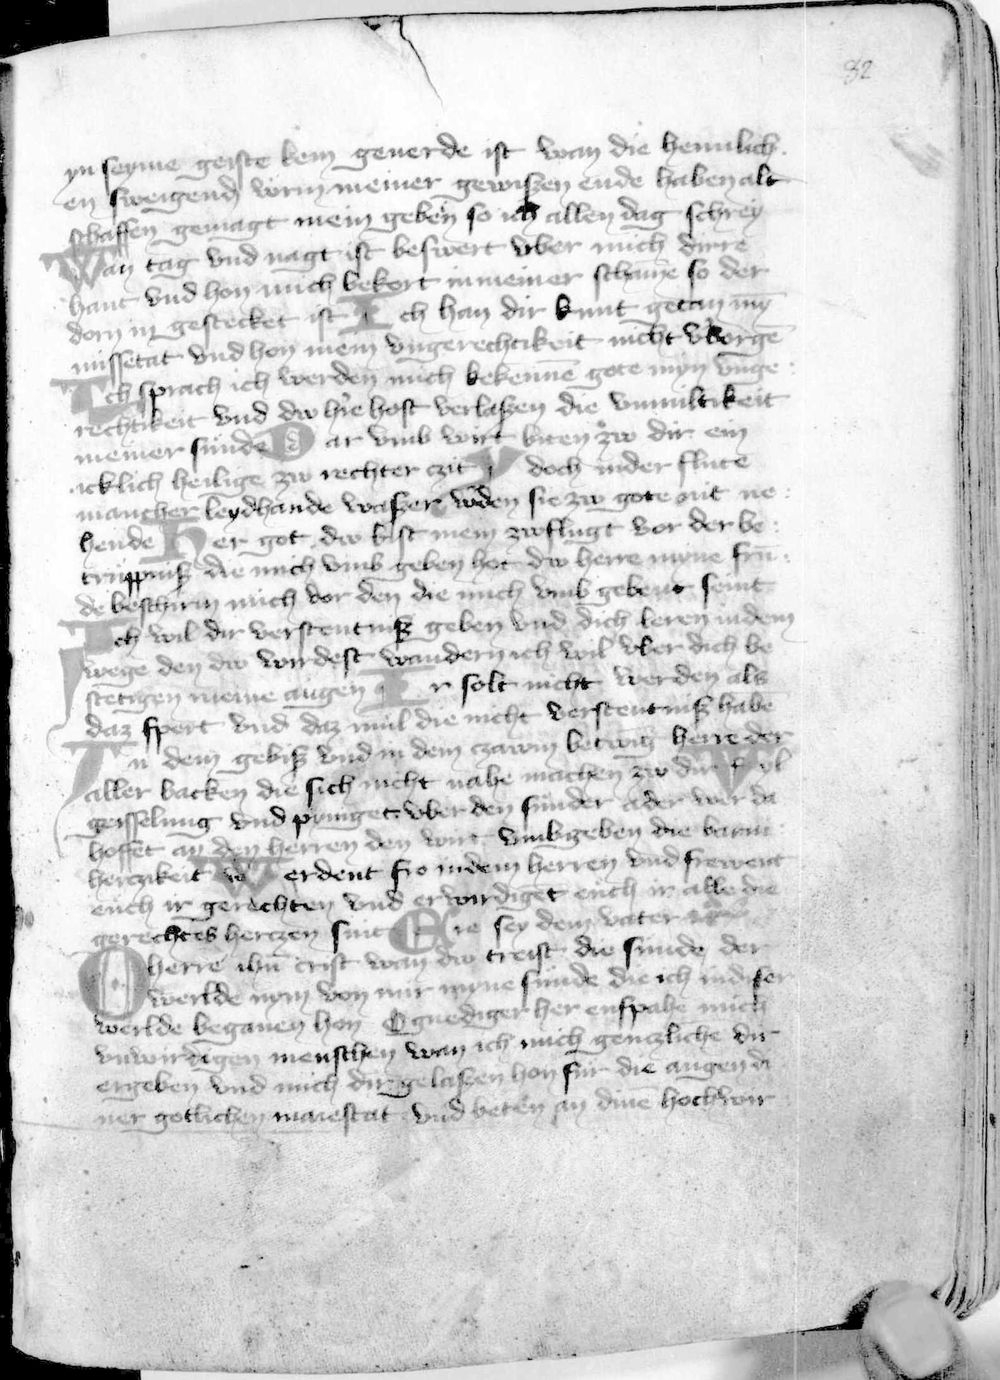 82
yn seyme geiste kein geuerde ist wan die heimlich
en sweigend wirm meiner gewißen ende haben alt
schaffen gemagt mein geben so ich allen dag schrey
Wan tag vnd nagt ist beswert vber mich dirre
hant vnd hon mich bekort in meiner schame so der
dorn in gestecket ist Ich han dir kunt getan my
missetat vnd hon mein vngerechtikeit nicht vborge
Ich sprach ich werden mich bekenne gote myn vnge
rechtikeit vnd dw hie host verlaßen die vnmiltikeit
meiner sünde Dar vmb wirt biten zw dir ein
icklich heilige zw rechter czit Ydoch in der flute
mancher leydhande waßer wden sie zw gote nit ne
hende Her got dw bist mein zwflugt vor der be
trüppniß die mich vmb geben hot dw herre myne frü
de beschirm mich vor den die mich vmb gebent seint
Ich wil dir verstentniß geben vnd dich leren in dem
wege den dw wirdest wandern ich wil vber dich be
stetigen meine augen Ir solt nicht werden als
daz pfert vnd daz mul die nicht verstentniß habe
In dem gebiß vnd in dem czawm betwing herre der
aller backen die sich nicht nahe machen zw dir Vil
geisselung vnd pyniget vber den sünder ader wer da
hoffet an den herren den wirt vmbgeben die barm
herczikeit Werdent fro in dem herren vnd frewent
euch ir gerechten vnd erwirdiget euch ir alle die
gerechtes herczen sint Ere sey dem vater
O herre ihu crist wan dw treist die sünde der
werlde nym von mir myne sünde die ich in diser
werlde begangen hon O gnediger her enfahe mich
vnwirdigen menschen wan ich mich genczliche dir
ergeben vnd mich dir gelaßen hon für die augen di
ner gotlichen maiestat vnd beten an dine hochwir